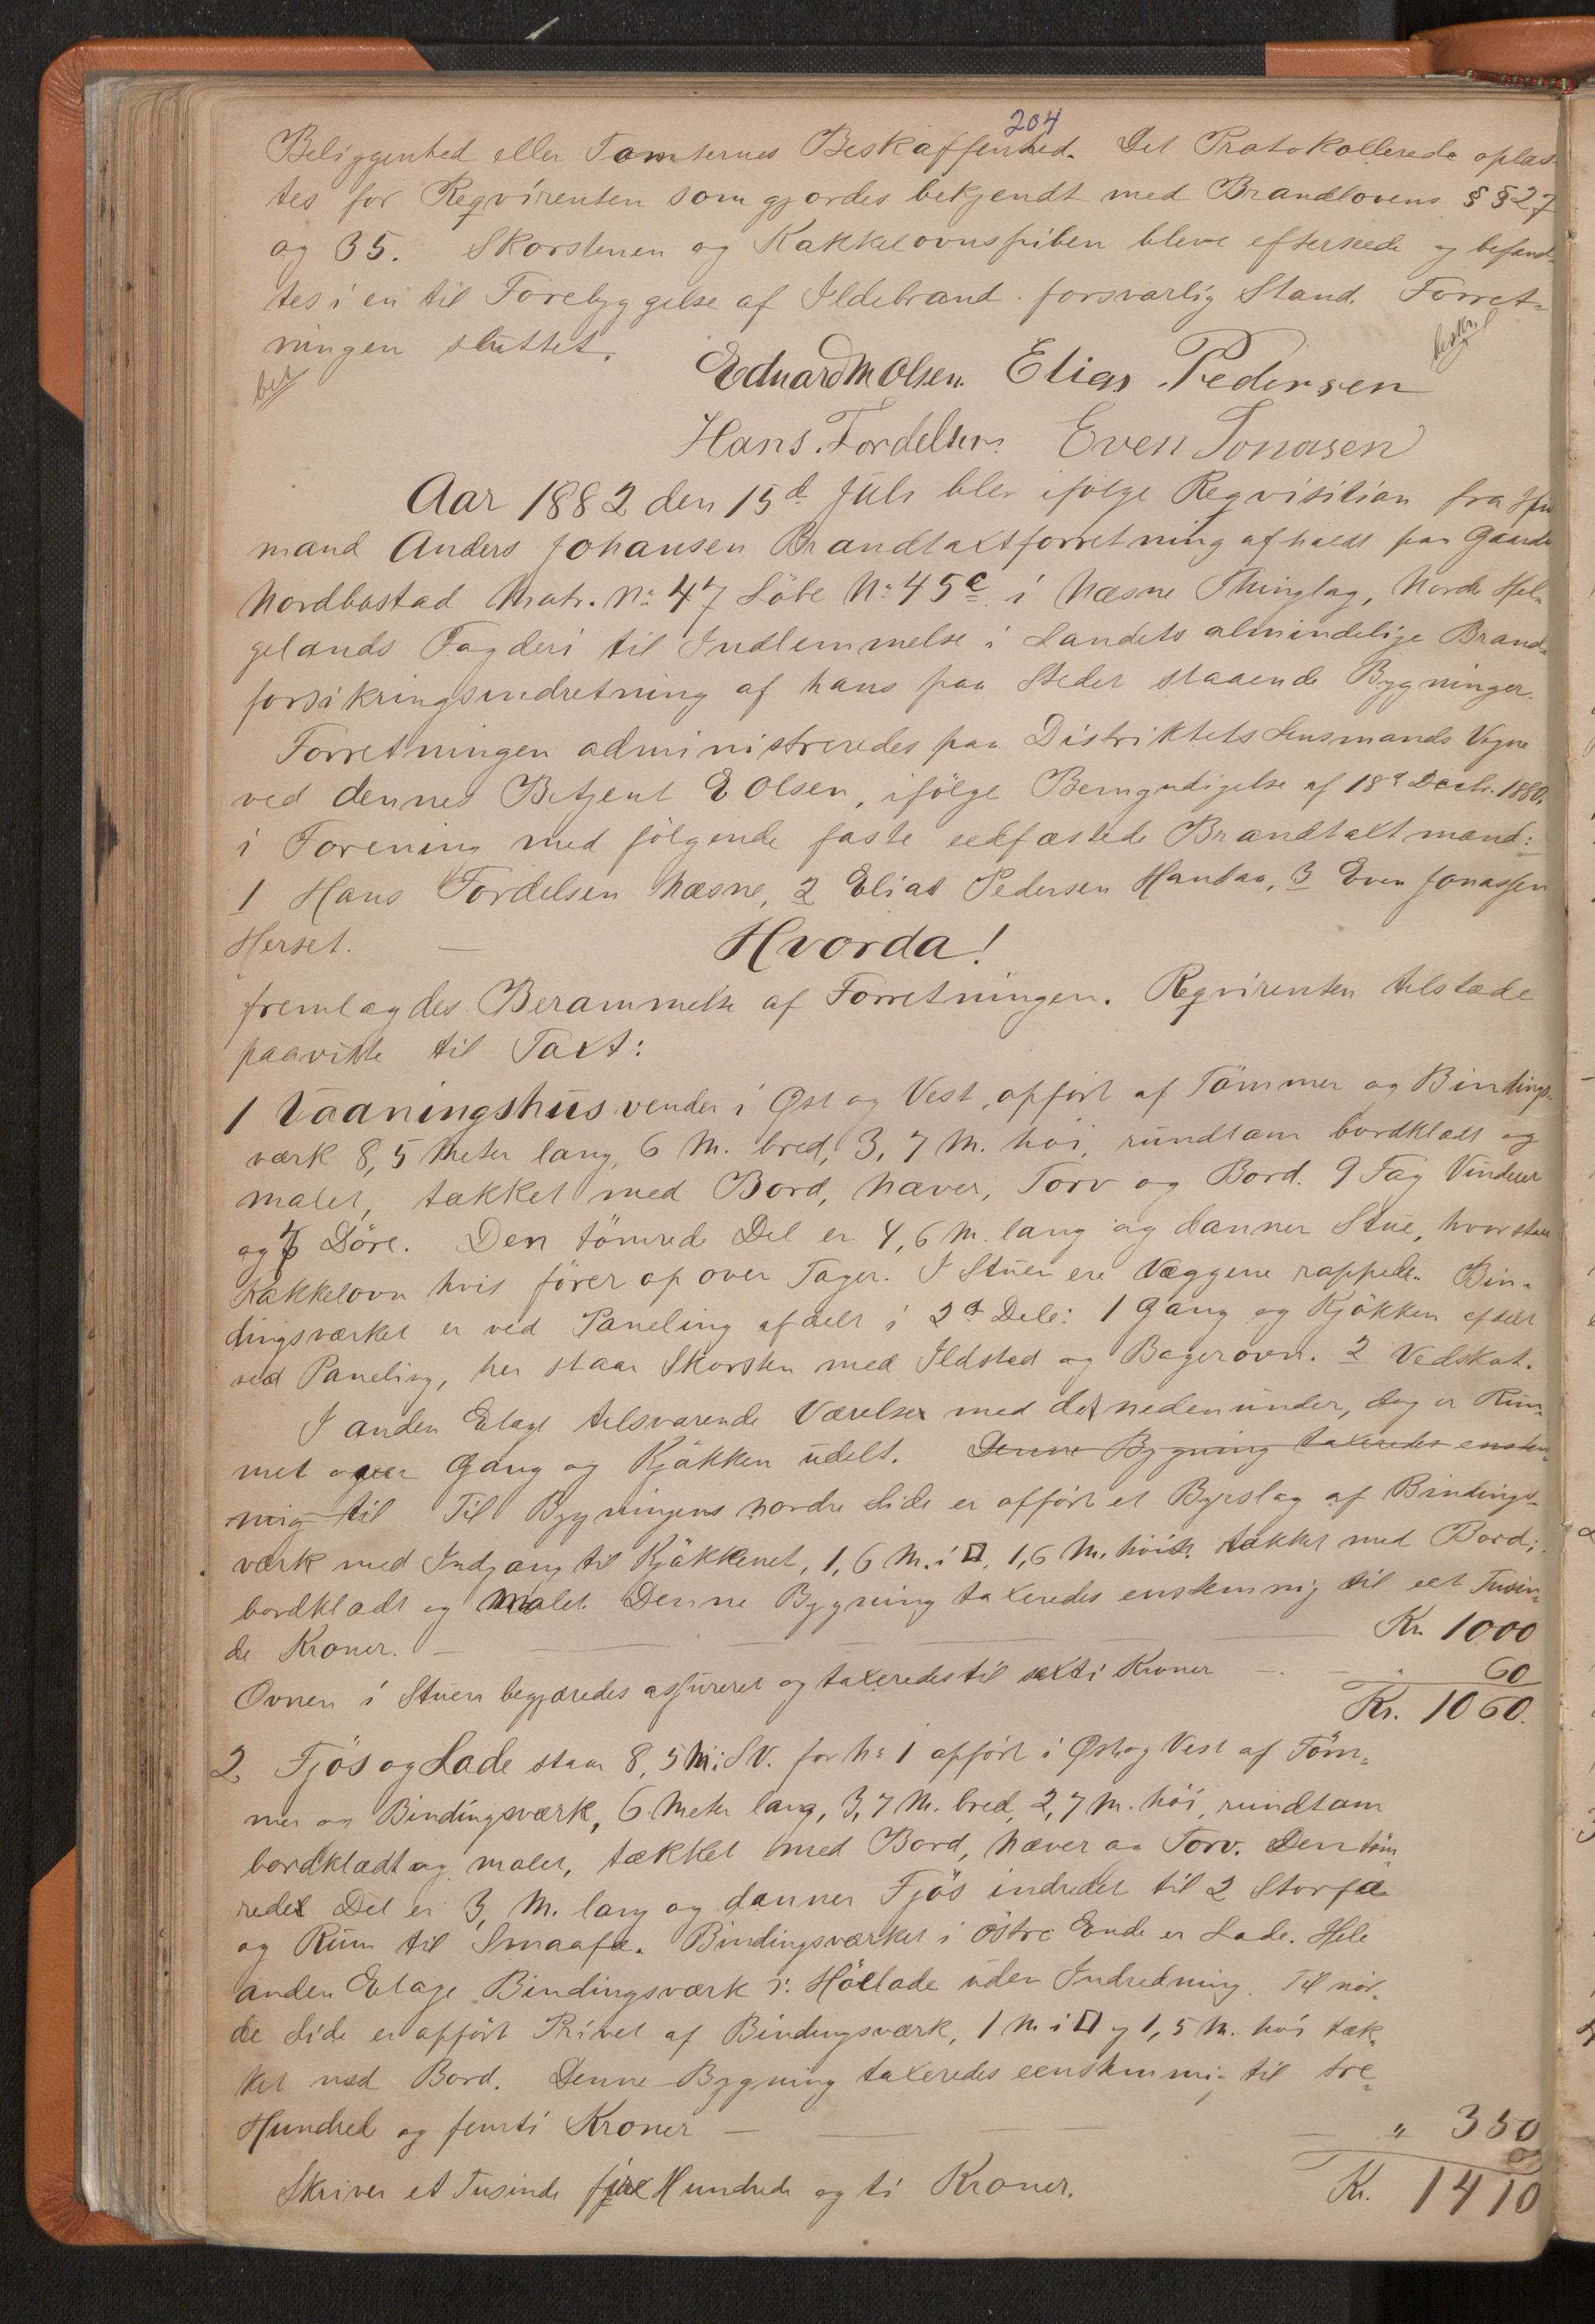 204
Beliggenhed eller Tomternes Beskaffenhed. Det Protokollerede oplæs-
tes for Reqvirenten som gjordes bekjendt med Brandlovens §§27
og 35. Skorstenen og Kakkelovnspiben bleve efterseede og befand-
tes i en til Forebyggelse af Ildebrand forsvarlig Stand. Forret-
ningen sluttet.
Eduard M Olsen. Elias Pedersen
Hans Tordelsen. Even Jonasen
Aar 1882 den 15d Juli blev ifølge Reqvisition fra Hus
mand Anders Johansen Brandtaxtforretning afholdt paa Gaarden
Nordbostad Matr. No 47 Löbe No 45c i Næsne Thinglag, Nordre Hel-
gelands Fogderi til Indlemmelse i Landets almindelige Brand-
forsikringsindretning af hans paa Stedet staaende Bygninger.
Forretningen administreredes paa Distriktets Lensmands Vegne
ved dennes Betjent E Olsen, ifölge Bemyndigelse af 18d Decbr. 1880,
i Forening med fölgende faste eedfæstede Brandtaxtmænd:
1 Hans Tordelsen Næsne, 2 Elias Pedersen Handaa, 3 Even Jonassen
Herset. — Hvorda!
fremlagdes Berammelse af Forretningen. Reqvirenten tilstæde
paaviste til Taxt:
1 Vaaningshus vender i Øst og Vest, opfört af Tömmer og Bindings-
værk 8,5 Meter lang, 6 M. bred, 3,7 M. höi, rundtom bordklædt og
malet, tækket med Bord, Næver, Torv og Bord. 9 Fag Vinduer
og 7 Döre. Den tömred Del er 4,6 M. lang og danner Stue, hvor staar
Kakkelovn hvis förer op over Taget. I Stuen ere Væggene rappede. Bin-
dingsværket er ved Paneling afdelt i 2d Dele: 1 Gang og Kjökken afdelt
ved Paneling, her staar Skorsten med Ildsted og Bagerovn. 2 Vedskot.
I anden Etage tilsvarende Værelser med det nedenunder, dog er Rum-
met over Gang og Kjökken udelt. Denne Bygning taxeredes enstem-
mig til Til Bygningens nordre Side er opfört et Bygslag af Bindings-
værk med Indgang til Kjökkenet, 1,6 M. i □, 1,6 M. höit tækket med Bord,
bordklædt og malet. Denne Bygning taxeredes enstemmig til eet Tusin-
de Kroner. — Kr. 1000
Ovnen i Stuen begjæredes assureret og taxeredes til sexti Kroner — " 60
Kr. 1060.
2 Fjös og Lade staar 8,5 M. i SV. for No 1 opfört i Øst og Vest af Töm-
mer og Bindingsværk, 6 Meter lang, 3,7 M. bred, 2,7 M. höi, rundtom
bordklædt og malet, tækket med Bord, Næver og Torv. Den töm-
rede Del er 3, M. lang og danner Fjös indredet til 2 Storfæ
og Rum til Smaafæ. Bindingsværket i östre Ende er Lade. Hele
anden Etage Bindingsværk i: Hölade uden Indredning. Til nor-
dre Side er opfört Privet af Bindingsværk, 1 M i □ og 1,5 M. höi tæk-
ket med Bord. Denne Bygning taxeredes eenstemmig til tre-
Hundrede og femti Kroner — " 350
Skriver et Tusinde fire Hundrede og ti Kroner. Kr. 1410